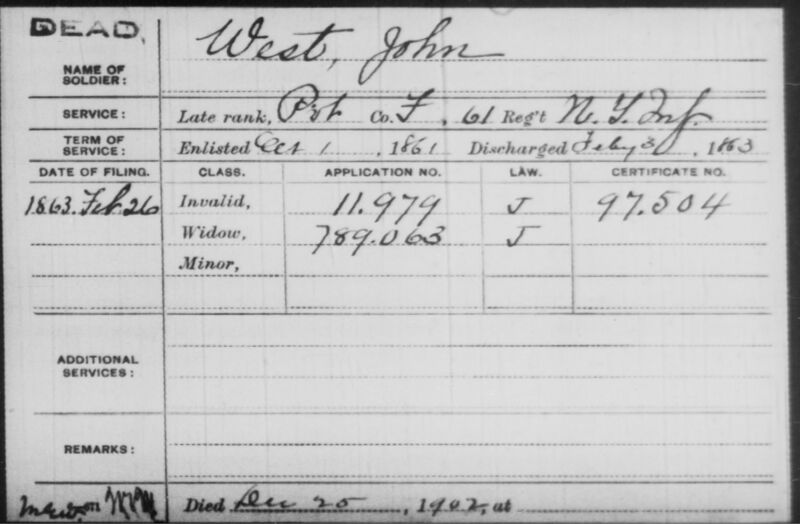 DEAD.
West, John
NAME OF SOLDIER:
SERVICE: Late rank, Pvt Co. F, 61 Reg't N.Y. Inf.
TERM OF SERVICE: Enlisted Oct 1, 1861 Discharged Feby 3, 1863
DATE OF FILING. CLASS. APPLICATION NO. LAW. CERTIFICATE NO.
1863. Feb. 26 Invalid, 11.979 J 97.504
Widow, 789.063 J
Minor,
ADDITIONAL SERVICES:
REMARKS:
Died Dec 25, 1902, at